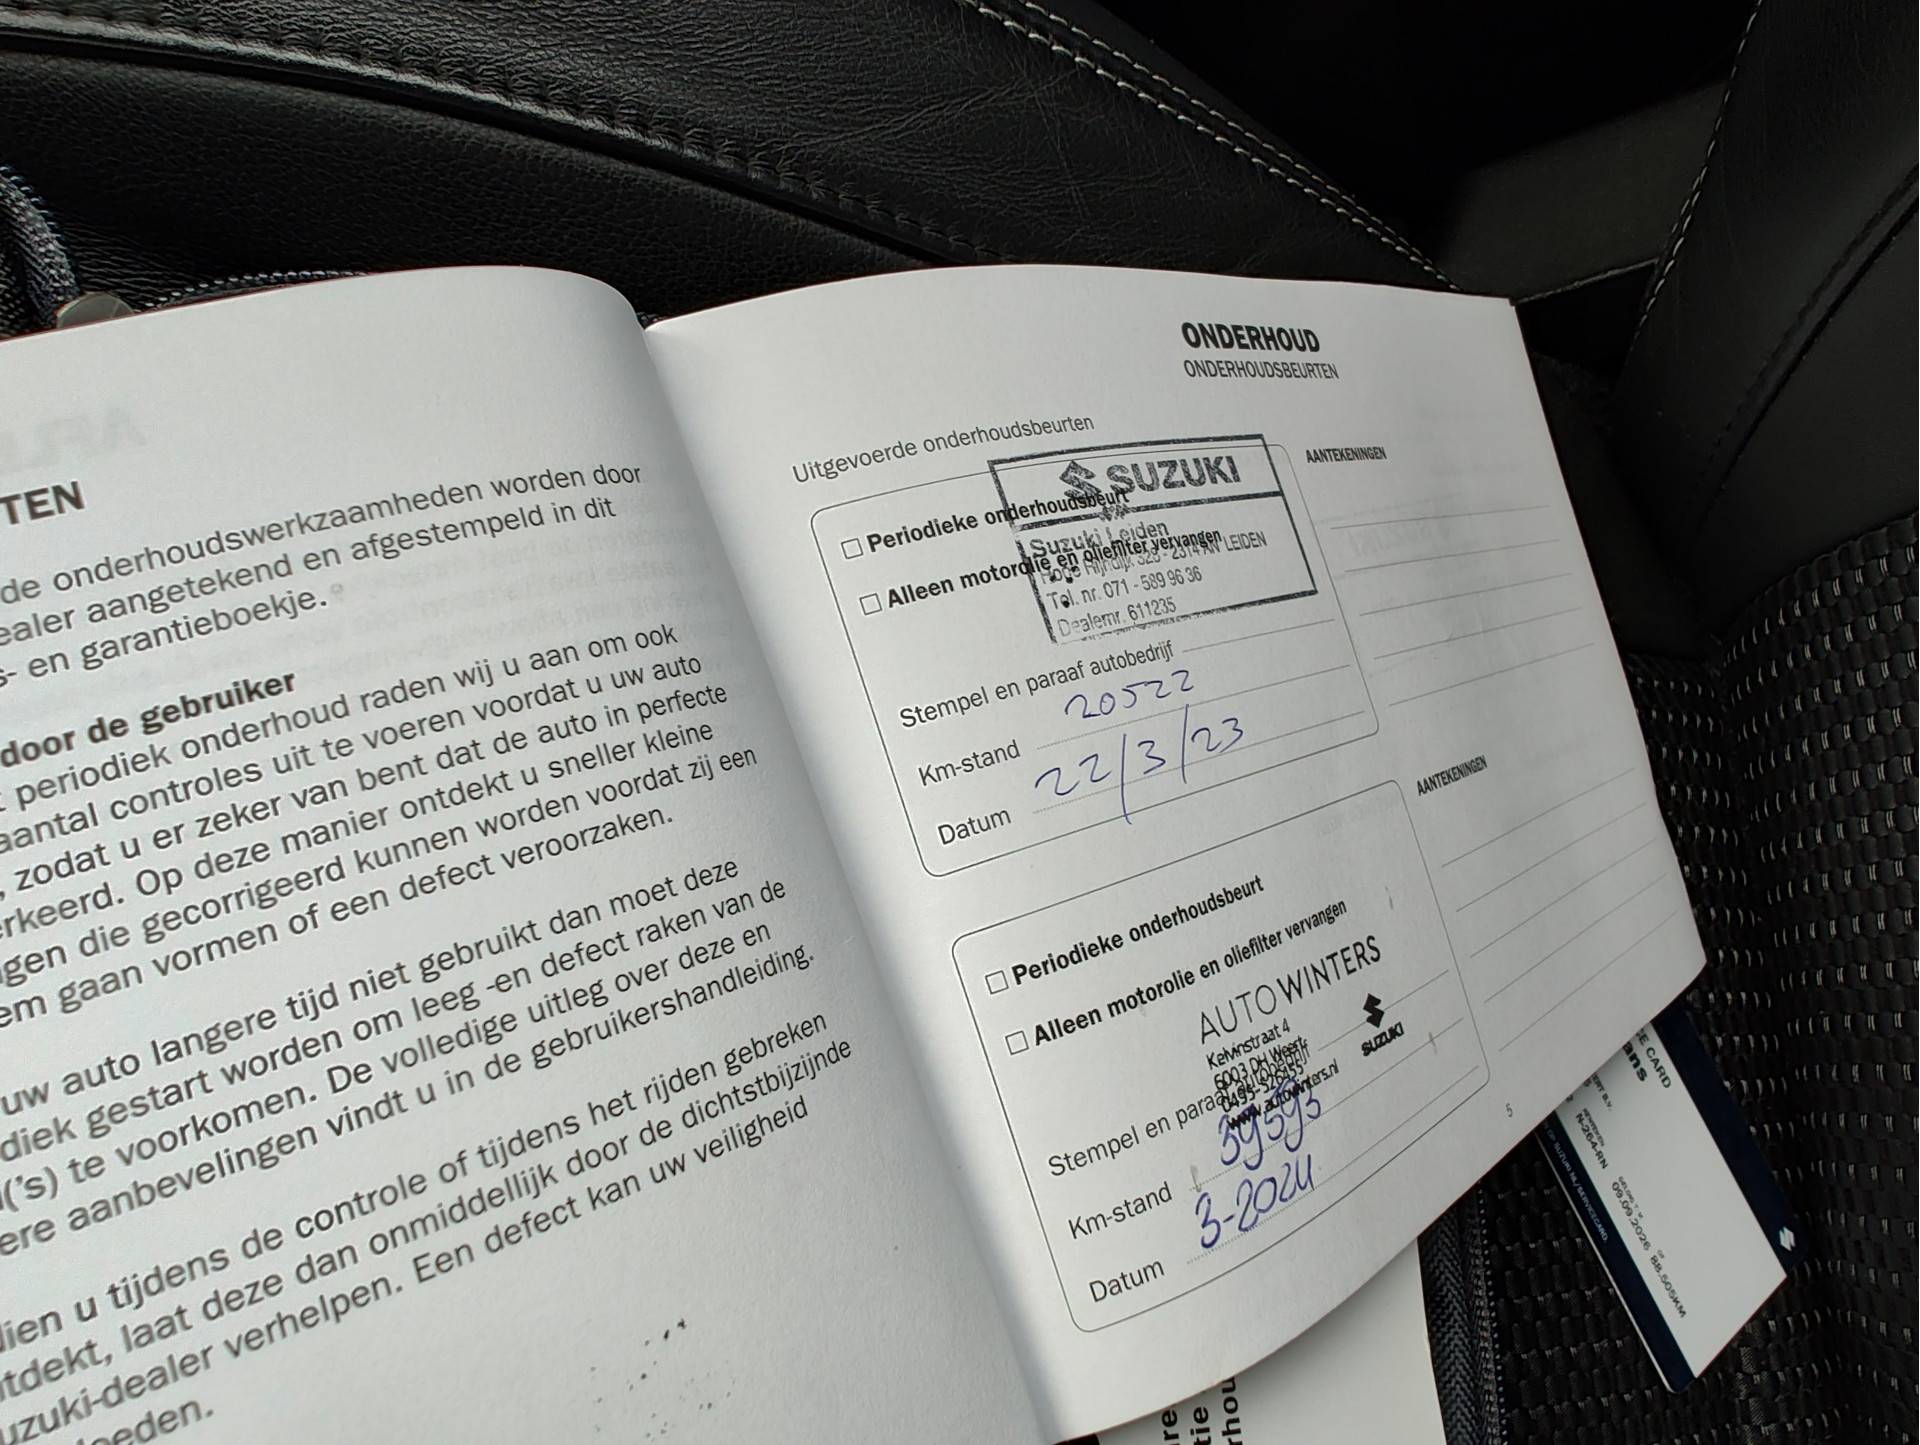 TEN
de onderhoudswerkzaamheden worden door
ealer aangetekend en afgestempeld in dit
s- en garantieboekje.
door de gebruiker
t periodiek onderhoud raden wij u aan om ook
aantal controles uit te voeren voordat u uw auto
, zodat u er zeker van bent dat de auto in perfecte
erkeerd. Op deze manier ontdekt u sneller kleine
ngen die gecorrigeerd kunnen worden voordat zij een
em gaan vormen of een defect veroorzaken.
uw auto langere tijd niet gebruikt dan moet deze
diek gestart worden om leeg -en defect raken van de
('s) te voorkomen. De volledige uitleg over deze en
ere aanbevelingen vindt u in de gebruikershandleiding.
dien u tijdens de controle of tijdens het rijden gebreken
ntdekt, laat deze dan onmiddellijk door de dichtstbijzijnde
uzuki-dealer verhelpen. Een defect kan uw veiligheid
loeden.
ONDERHOUD
ONDERHOUDSBEURTEN
Uitgevoerde onderhoudsbeurten
AANTEKENINGEN
SUZUKI
Periodieke onderhoudsbeurt
Suzuki Leiden
Alleen motorolie en oliefilter vervangen
Hoge Rijndijk 323 - 2314 AN LEIDEN
Tel. nr. 071 - 589 96 36
Dealernr. 611235
Stempel en paraaf autobedrijf
Km-stand 20522
Datum 22/3/23
AANTEKENINGEN
Periodieke onderhoudsbeurt
Alleen motorolie en oliefilter vervangen
AUTOWINTERS
SUZUKI
Kelvinstraat 4
6003 DH Weert
www.autowinters.nl
Stempel en paraaf autobedrijf
Km-stand 39593
Datum 3-2024
5
CE CARD
ans
N-264-RN
09.09.2026
OF
88.505KM